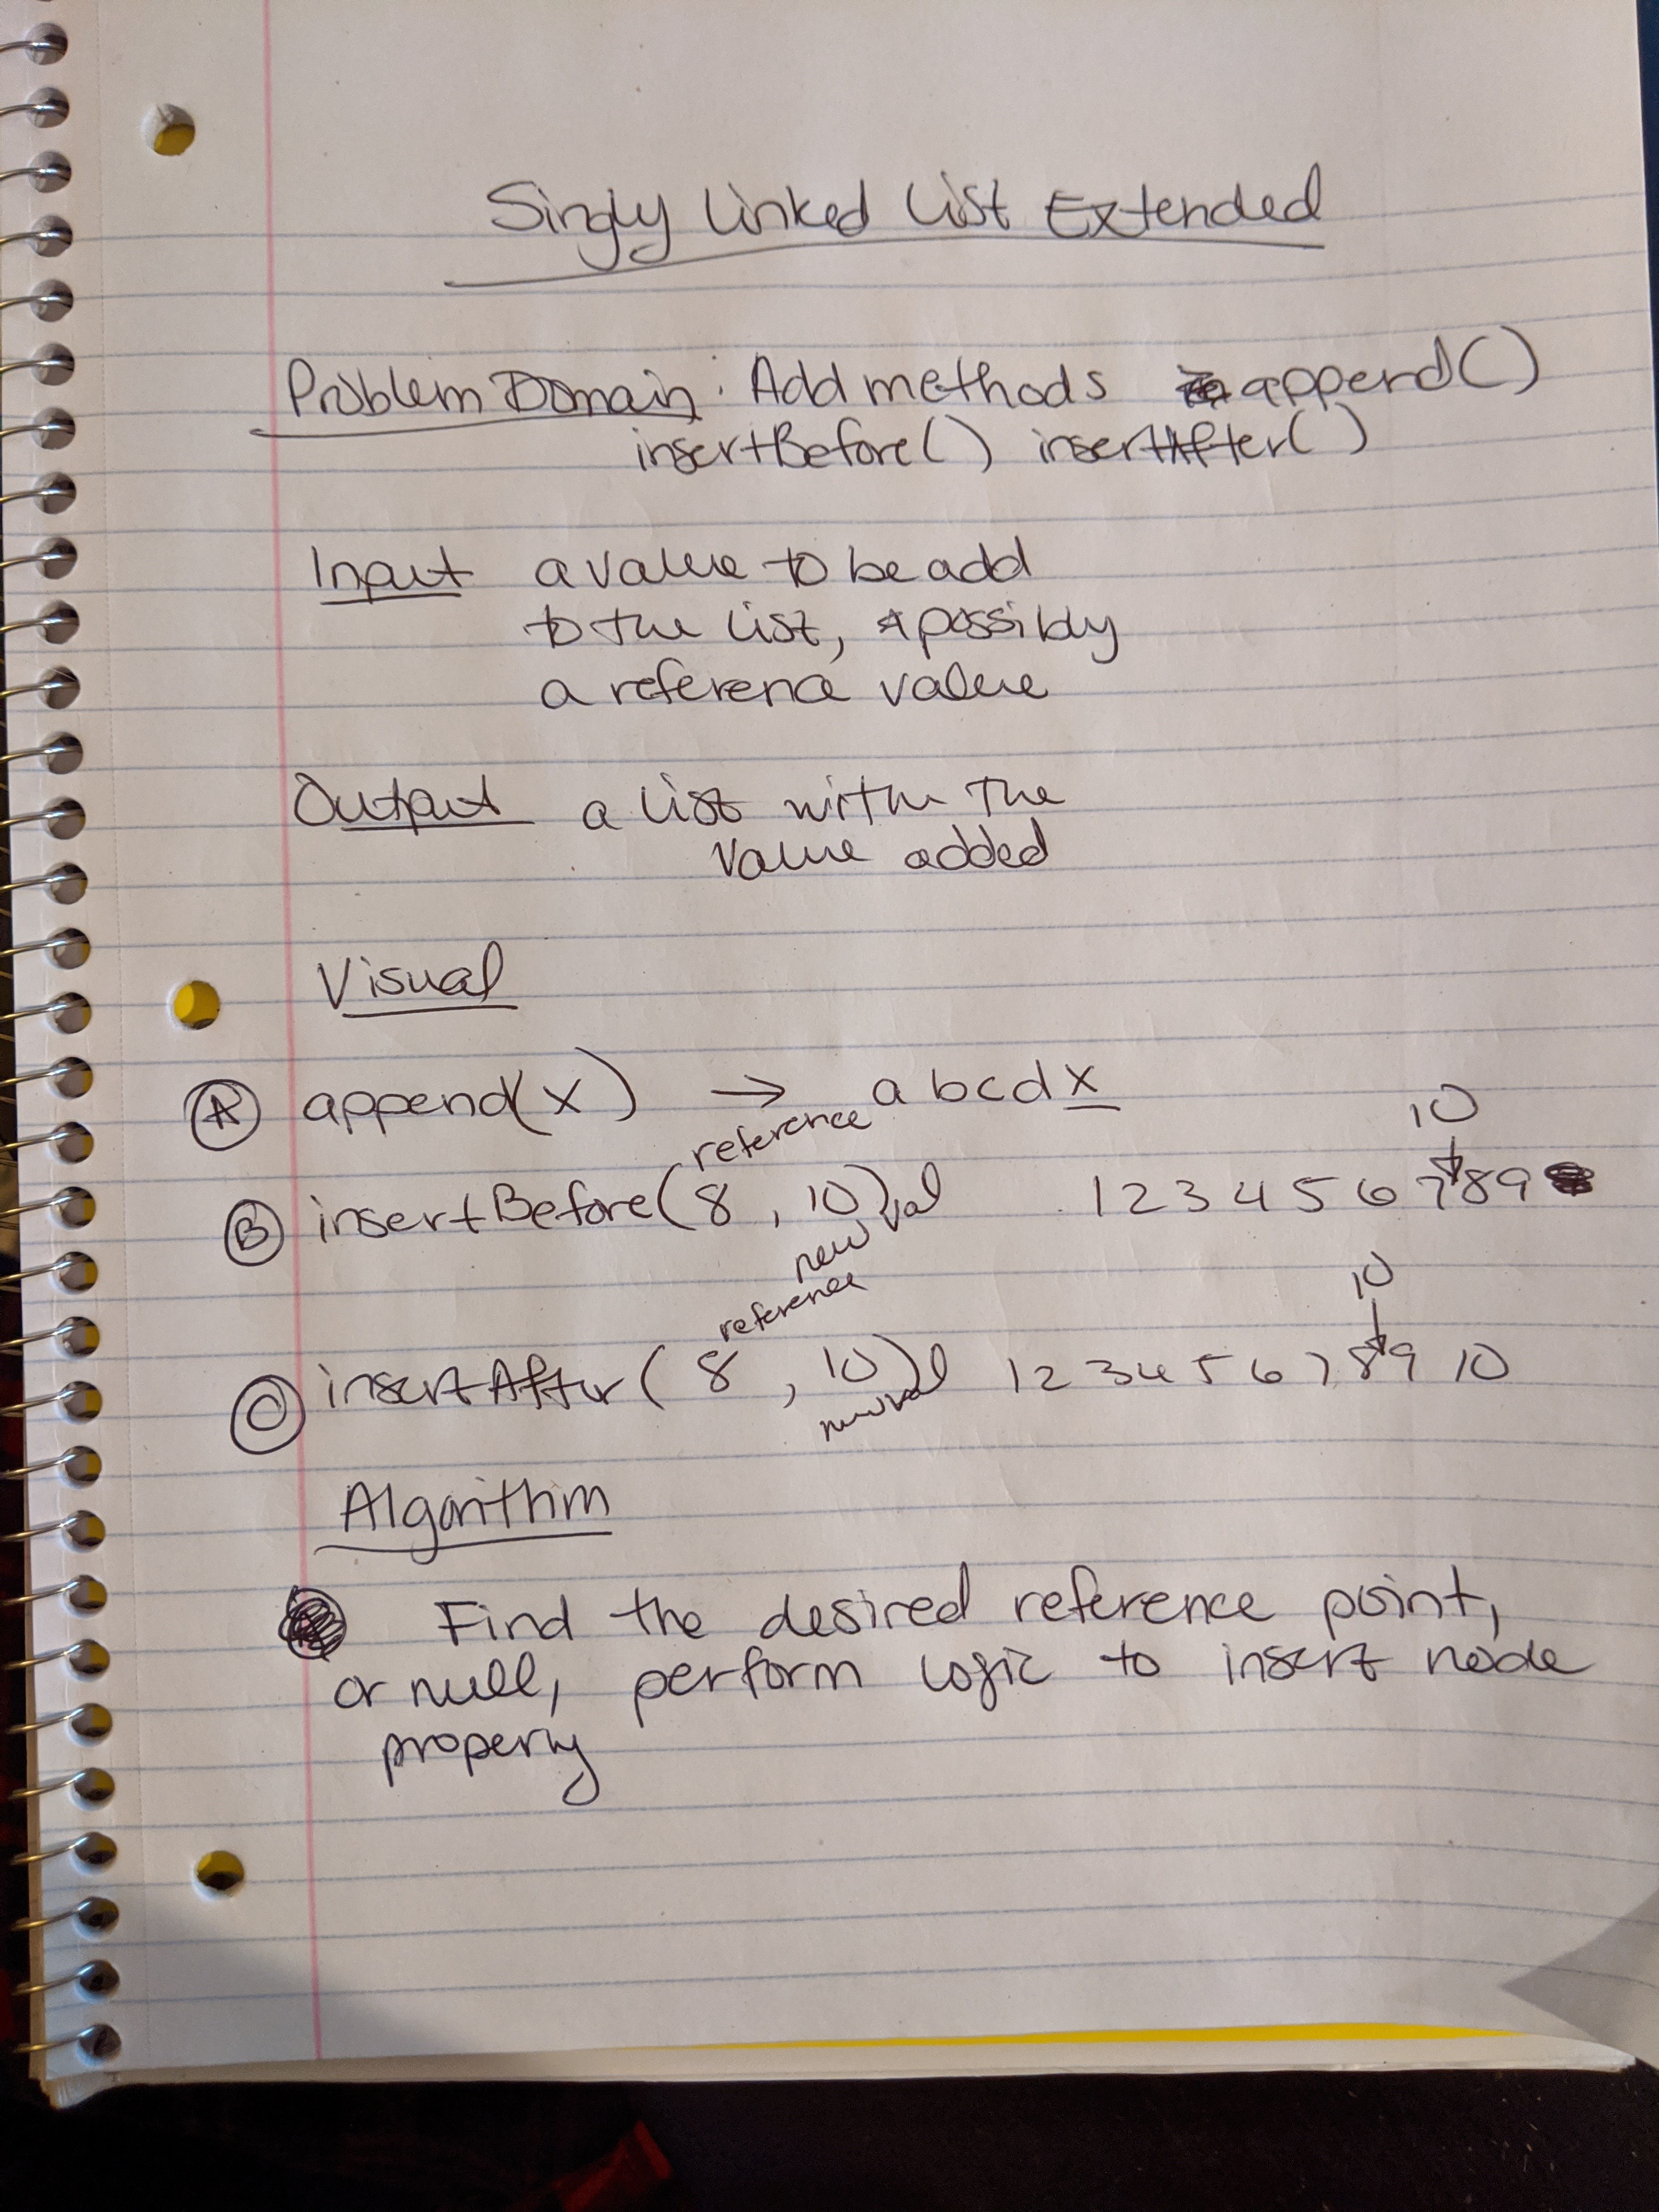 Singly Linked List Extended
Problem Domain: Add methods append()
insertBefore() insertAfter()
Input a value to be add
to the list, + possibly
a reference value
Output a list with the
value added
Visual
A append(x) → a b c d x
reference 10
B insertBefore(8, 10) 1 2 3 4 5 6 7 8 9
new val
reference 10
C insertAfter(8, 10) 1 2 3 4 5 6 7 8 9 10
new val
Algorithm
Find the desired reference point,
or null, perform logic to insert node
properly